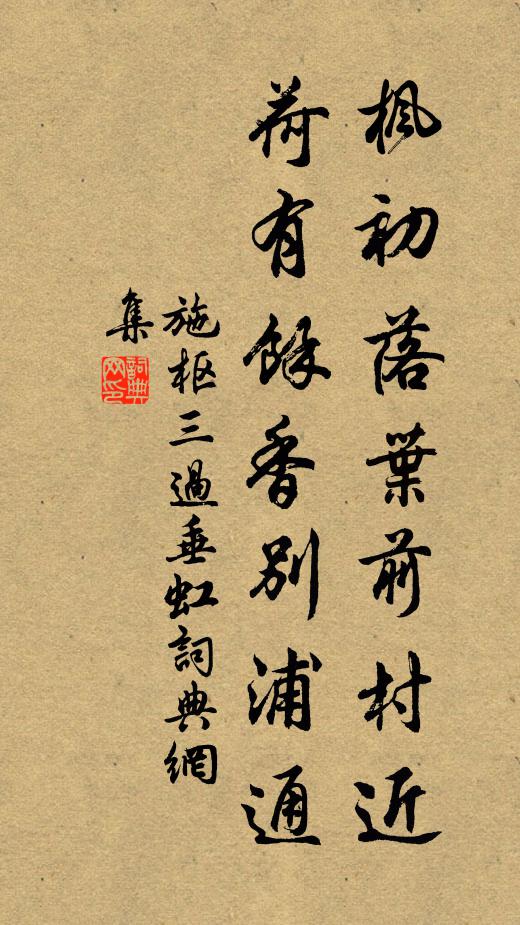 枫初落葉前村近
荷有餘香別浦通
施枢三過垂虹詞典網
集
詞典
网印